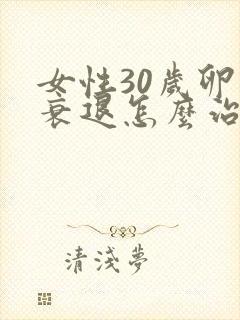 女性30歲卵
衰退怎麼治
清淺夢